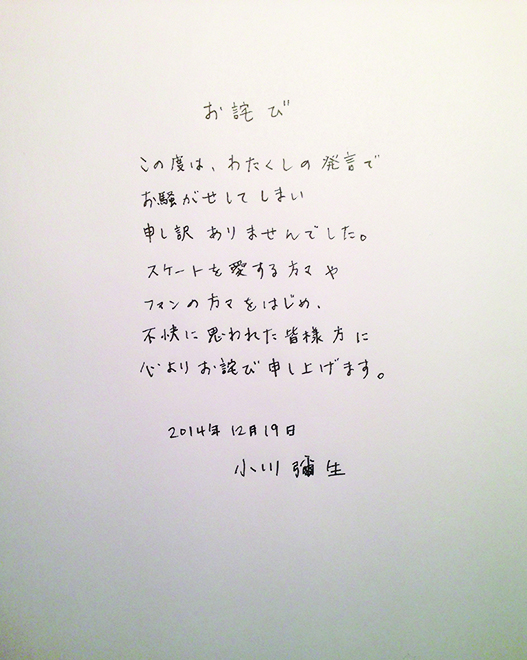 お詫び
この度は、わたくしの発言で
お騒がせしてしまい
申し訳ありませんでした。
スケートを愛する方々や
ファンの方々をはじめ、
不快に思われた皆様方に
心よりお詫び申し上げます。
2014年12月19日
小川彌生